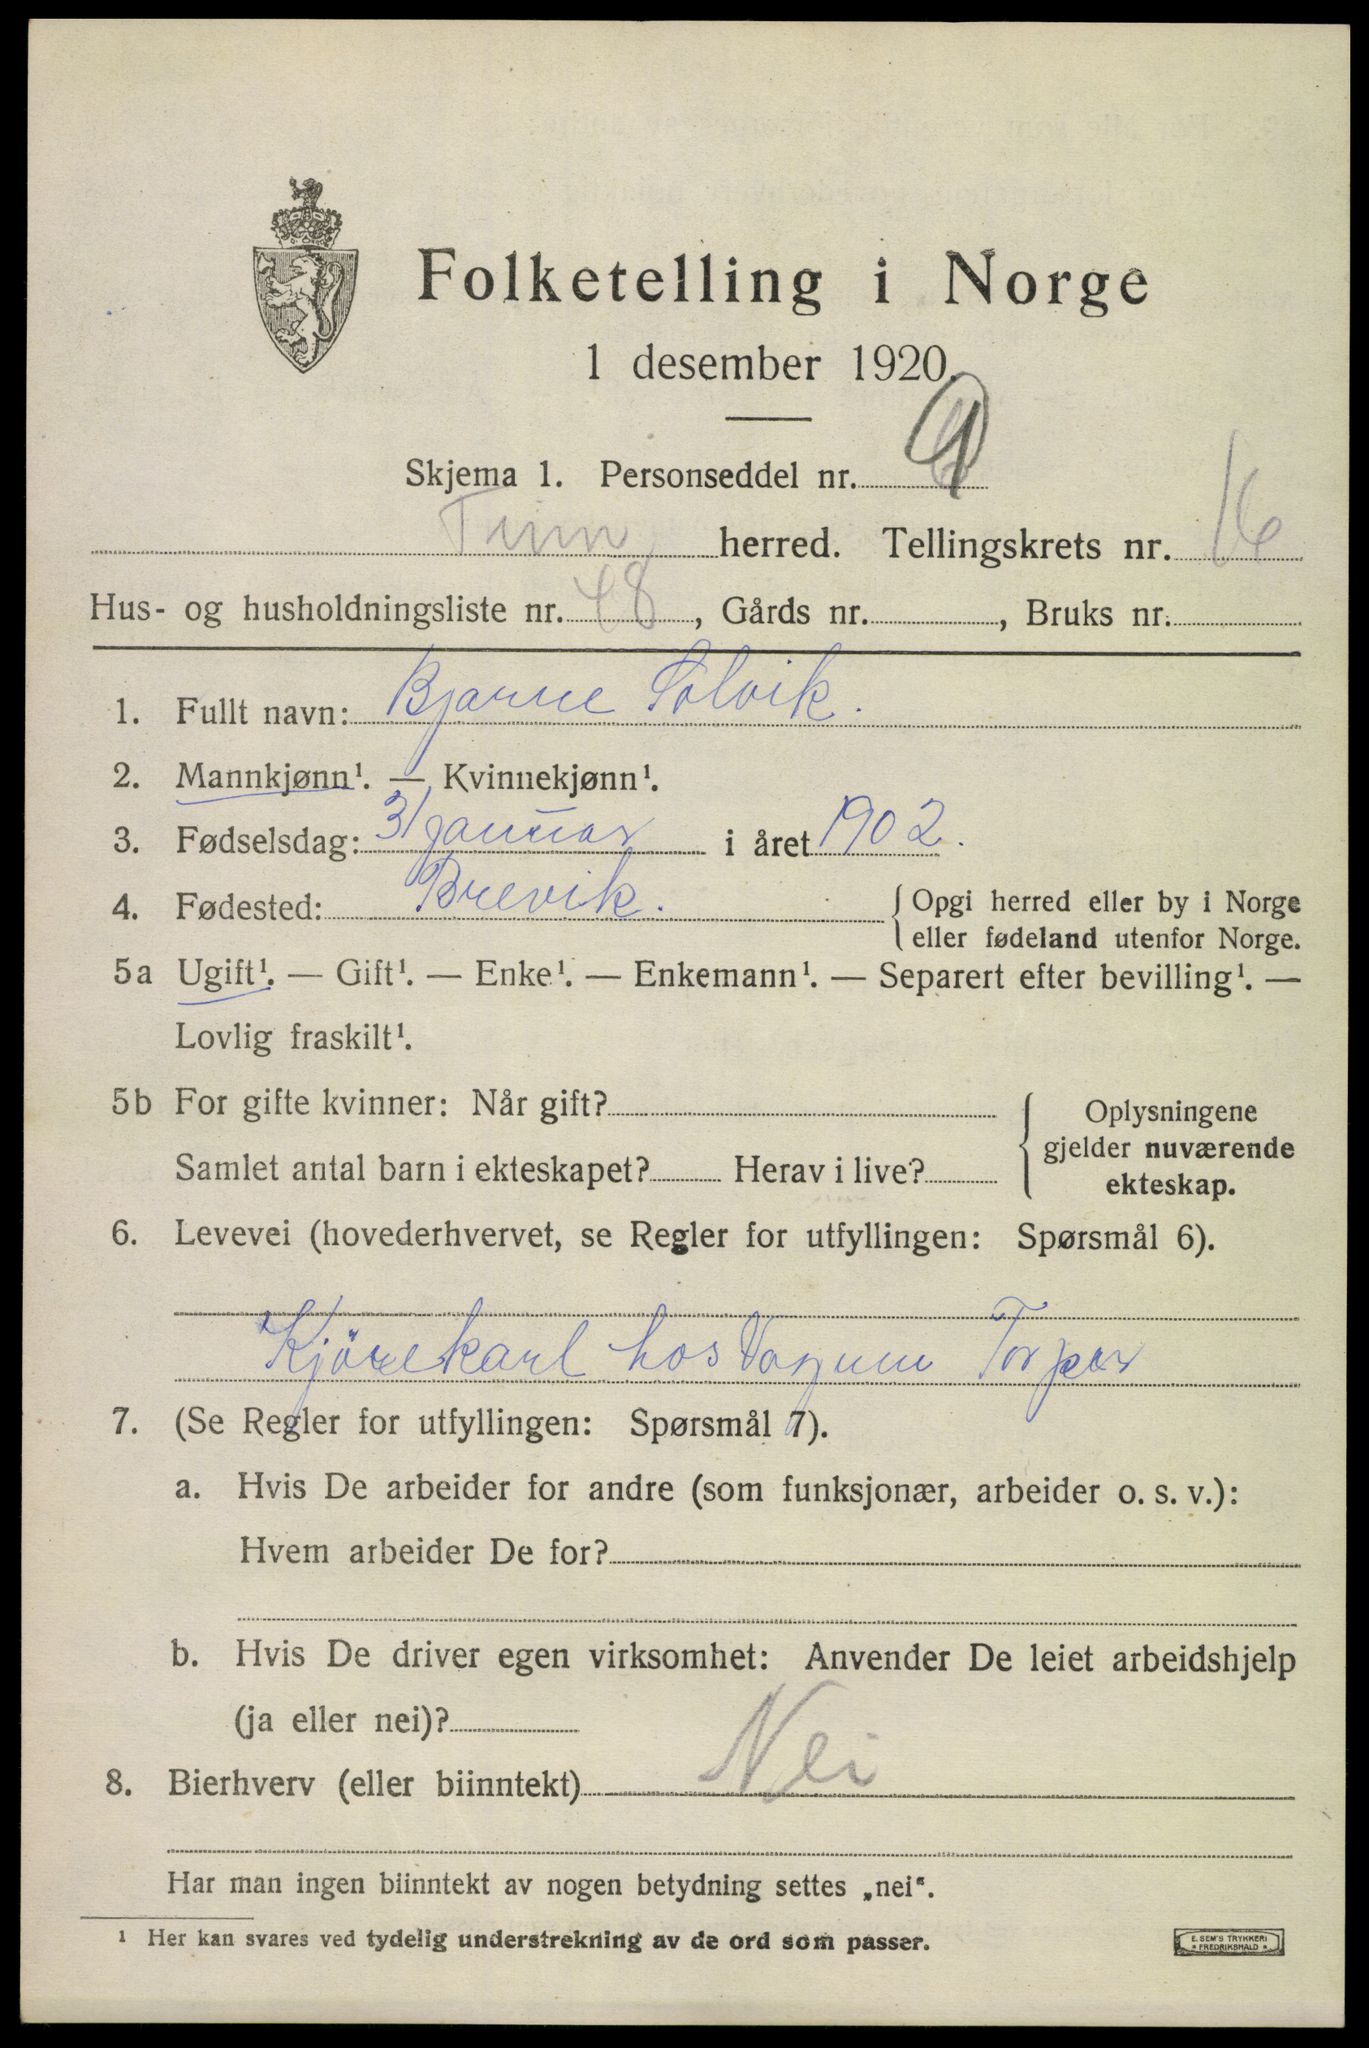 Folketelling i Norge
1 desember 1920.
Skjema 1. Personseddel nr.
Tinn herred. Tellingskrets nr. 16
Hus- og husholdningsliste nr. 48, Gårds nr. , Bruks nr.
1. Fullt navn: Bjarne Solvik.
2. Mannkjønn¹. — Kvinnekjønn¹.
3. Fødselsdag: 31 januar i året 1902.
4. Fødested: Brevik. { Opgi herred eller by i Norge
eller fødeland utenfor Norge.
5a Ugift¹. — Gift¹. — Enke¹. — Enkemann¹. — Separert efter bevilling¹. —
Lovlig fraskilt¹.
5b For gifte kvinner: Når gift?
Samlet antal barn i ekteskapet? Herav i live?
{ Oplysningene
gjelder nuværende
ekteskap.
6. Levevei (hovederhvervet, se Regler for utfyllingen: Spørsmål 6).
Kjörekarl hos
7. (Se Regler for utfyllingen: Spørsmål 7).
a. Hvis De arbeider for andre (som funksjonær, arbeider o. s. v.):
Hvem arbeider De for?
b. Hvis De driver egen virksomhet: Anvender De leiet arbeidshjelp
(ja eller nei)?
8. Bierhverv (eller biinntekt) Nei
Har man ingen biinntekt av nogen betydning settes „nei“.
¹ Her kan svares ved tydelig understrekning av de ord som passer.
E. SEM'S TRYKKERI
* FREDRIKSHALD *